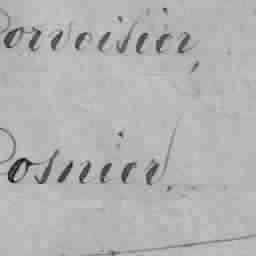 Corvoisier,
Cosnier.